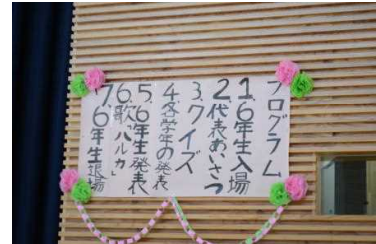 プログラム
1.6年生入場
2.代表あいさつ
3.クイズ
4.各学年の発表
5.6年生発表
6.歌「ハルカ」
7.6年生退場